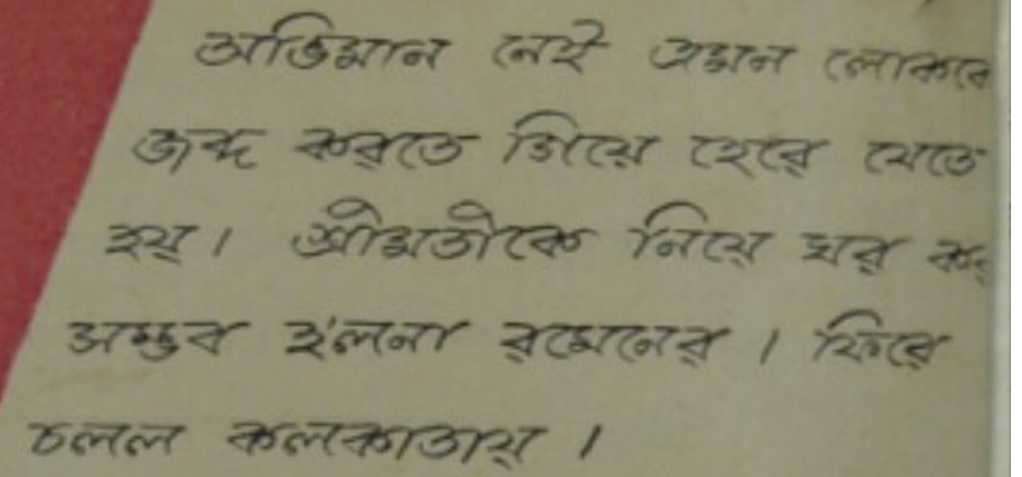 অভিমান নেই এমন লোককে
জব্দ করতে গিয়ে হেরে যেতে
হয়। শ্রীমতীকে নিয়ে ঘর কর
সম্ভব হ'লনা রমেনের। ফিরে
চলল কলকাতায়।